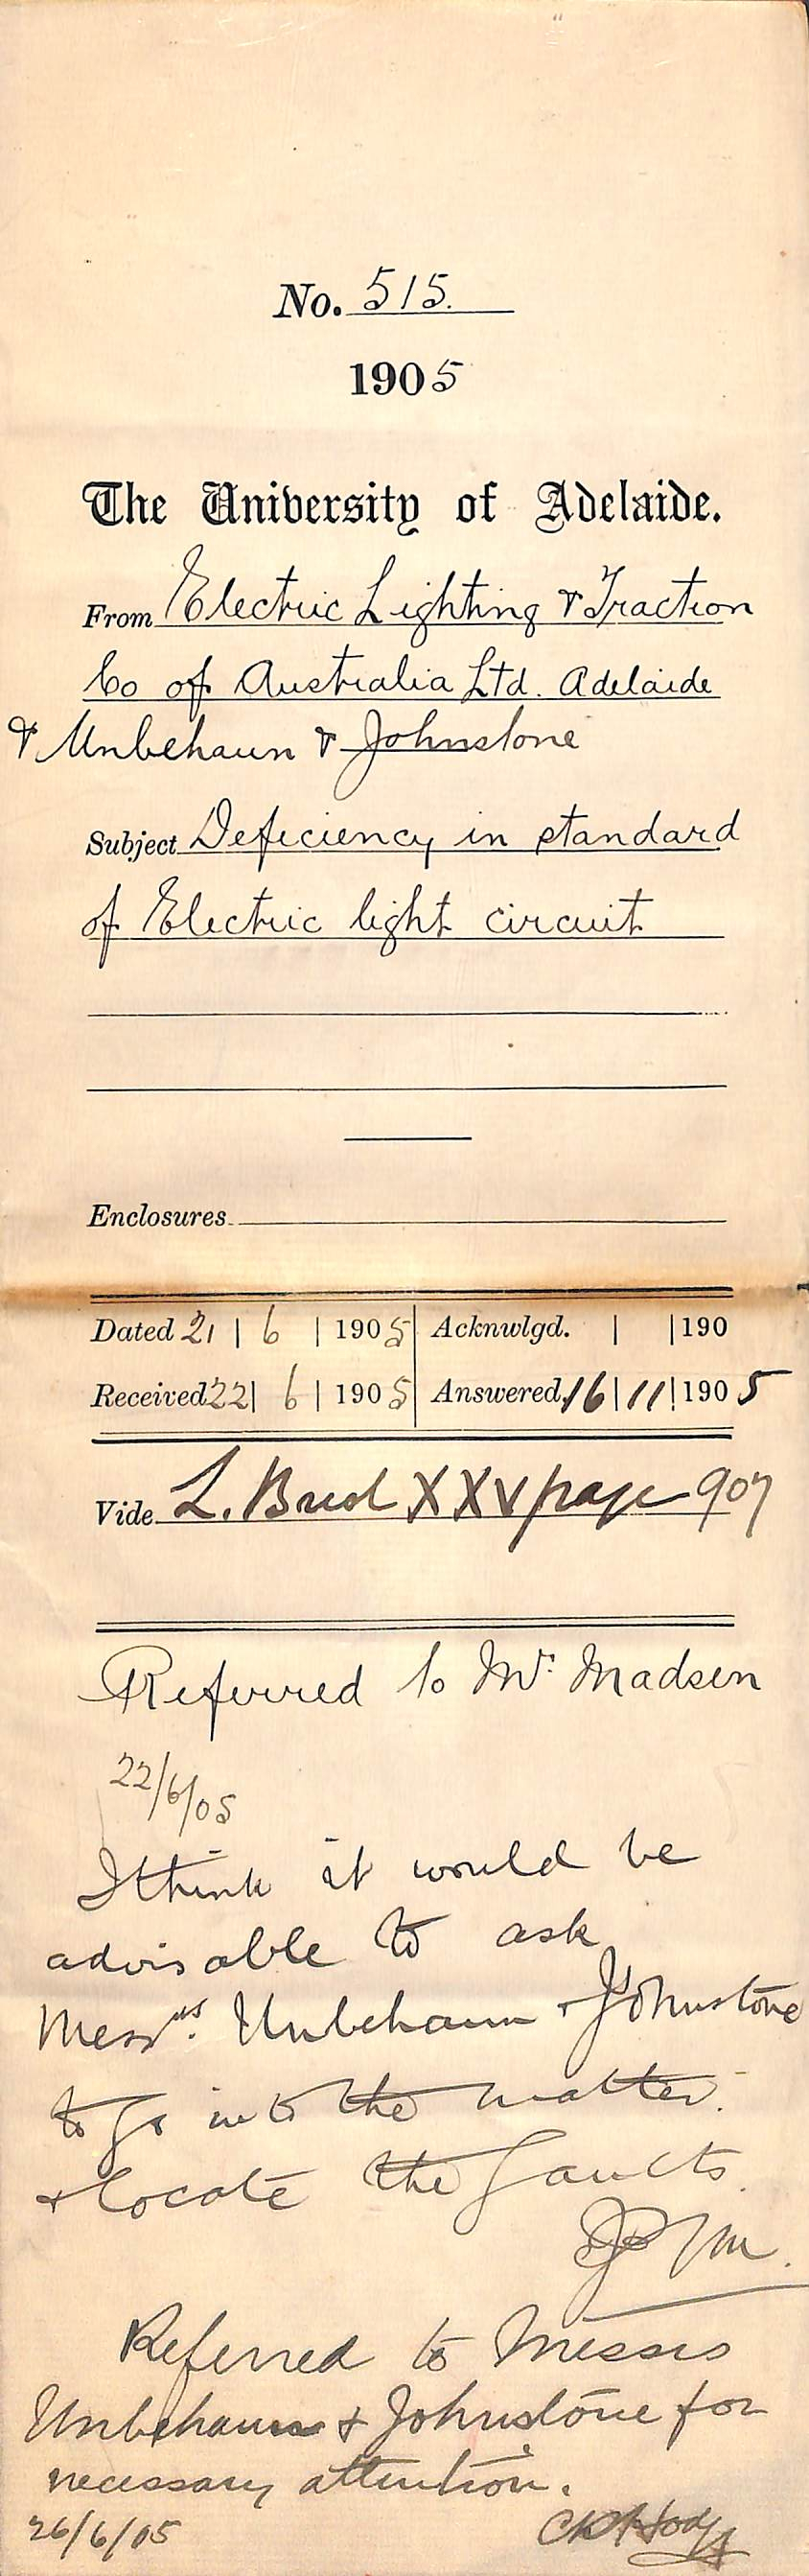 No. 515.
1905
The University of Adelaide.
From Electric Lighting & Traction
Co of Australia Ltd. Adelaide
& Unbehaun & Johnstone
Subject Deficiency in standard
of Electric light circuit
Enclosures
Dated 21 | 6 | 1905 Acknwlgd. | | 190
Received 22 | 6 | 1905 Answered 16 | 11 | 1905
Vide L. XXV page 907
Referred to Mr. Madsen
22/6/05
I think it would be
advisable to ask
Messrs. Unbehaun & Johnstone
to go into the matter.
& locate the faults.
Referred to Messrs
Unbehaun & Johnstone for
necessary attention.
26/6/05